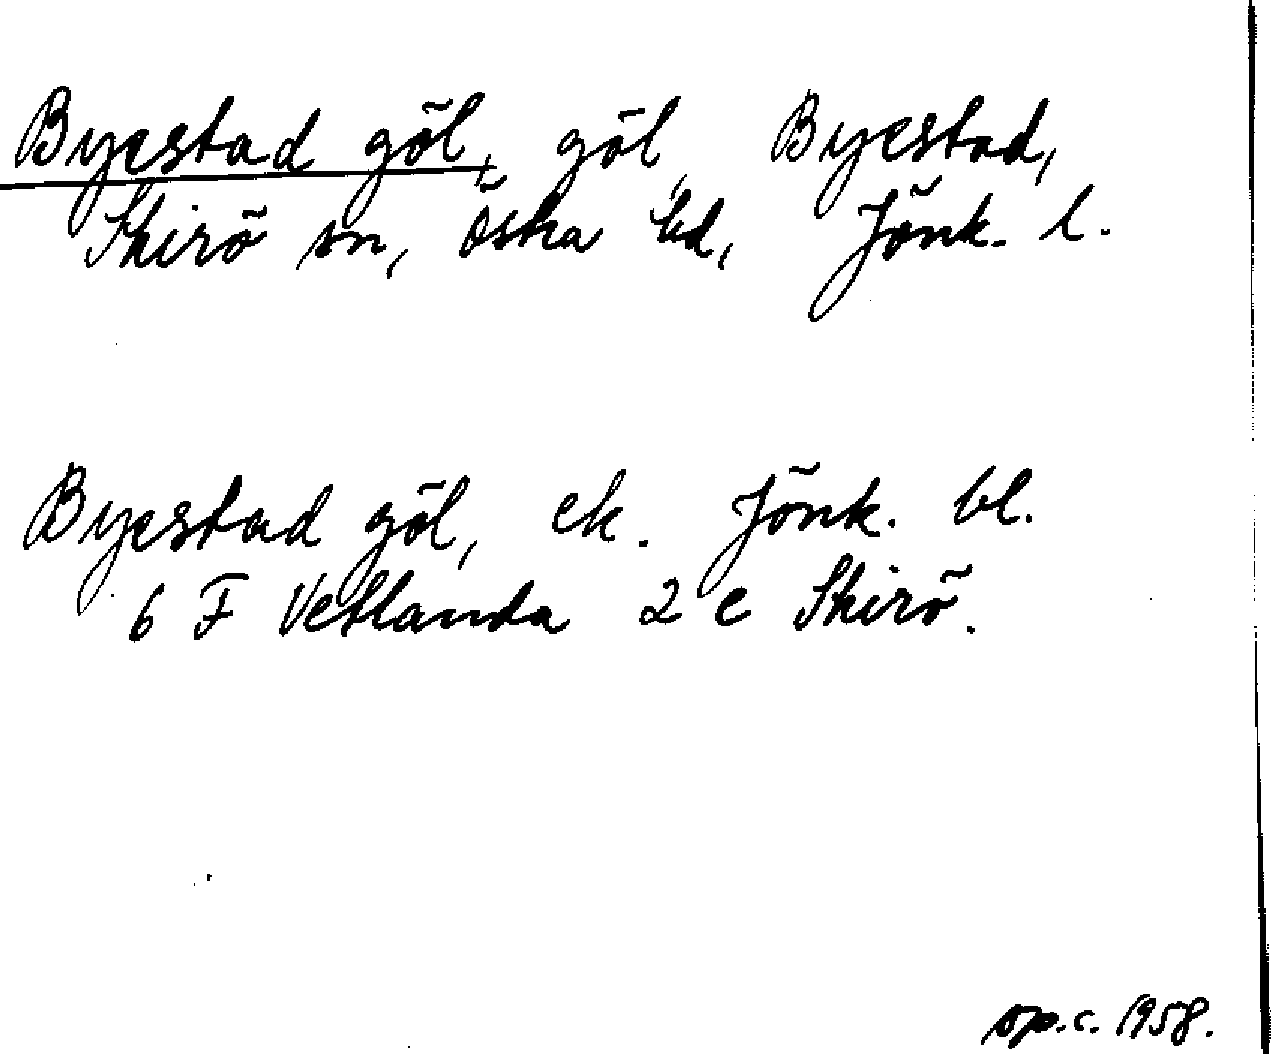 Byestad göl, göl, Byestad,
Skirö sn, Östra hd, Jönk. l.
Byestad göl, ek. Jönk. bl.
6 F Vetlanda 2 e Skirö.
op.c. 1958.